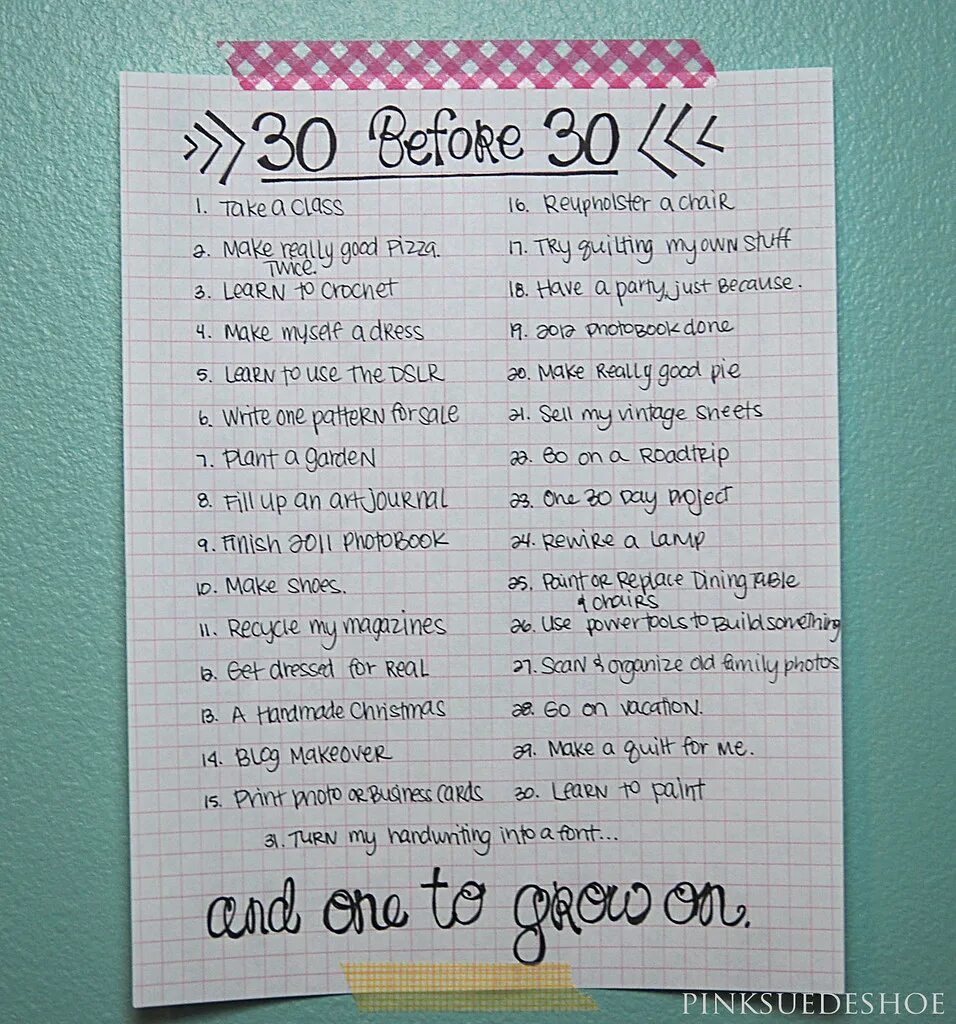 >>> 30 Before 30 <<<
1. Take a class
2. Make really good pizza.
Twice.
3. Learn to crochet
4. Make myself a dress
5. Learn to use the DSLR
6. Write one pattern for sale
7. Plant a garden
8. Fill up an art journal
9. Finish 2011 photobook
10. Make shoes.
11. Recycle my magazines
12. Get dressed for real
13. A Handmade Christmas
14. Blog Makeover
15. Print photo or Business cards
16. Reupholster a chair
17. Try quilting my own stuff
18. Have a party, just because.
19. 2012 photobook done
20. Make really good pie
21. Sell my vintage sheets
22. Go on a roadtrip
23. One 30 Day project
24. Rewire a lamp
25. Paint or Replace Dining Table
& chairs
26. Use power tools to Build something
27. Scan & organize old family photos
28. Go on vacation.
29. Make a quilt for me.
30. Learn to paint
31. Turn my handwriting into a font...
and one to grow on.
PINKSUEDESHOE